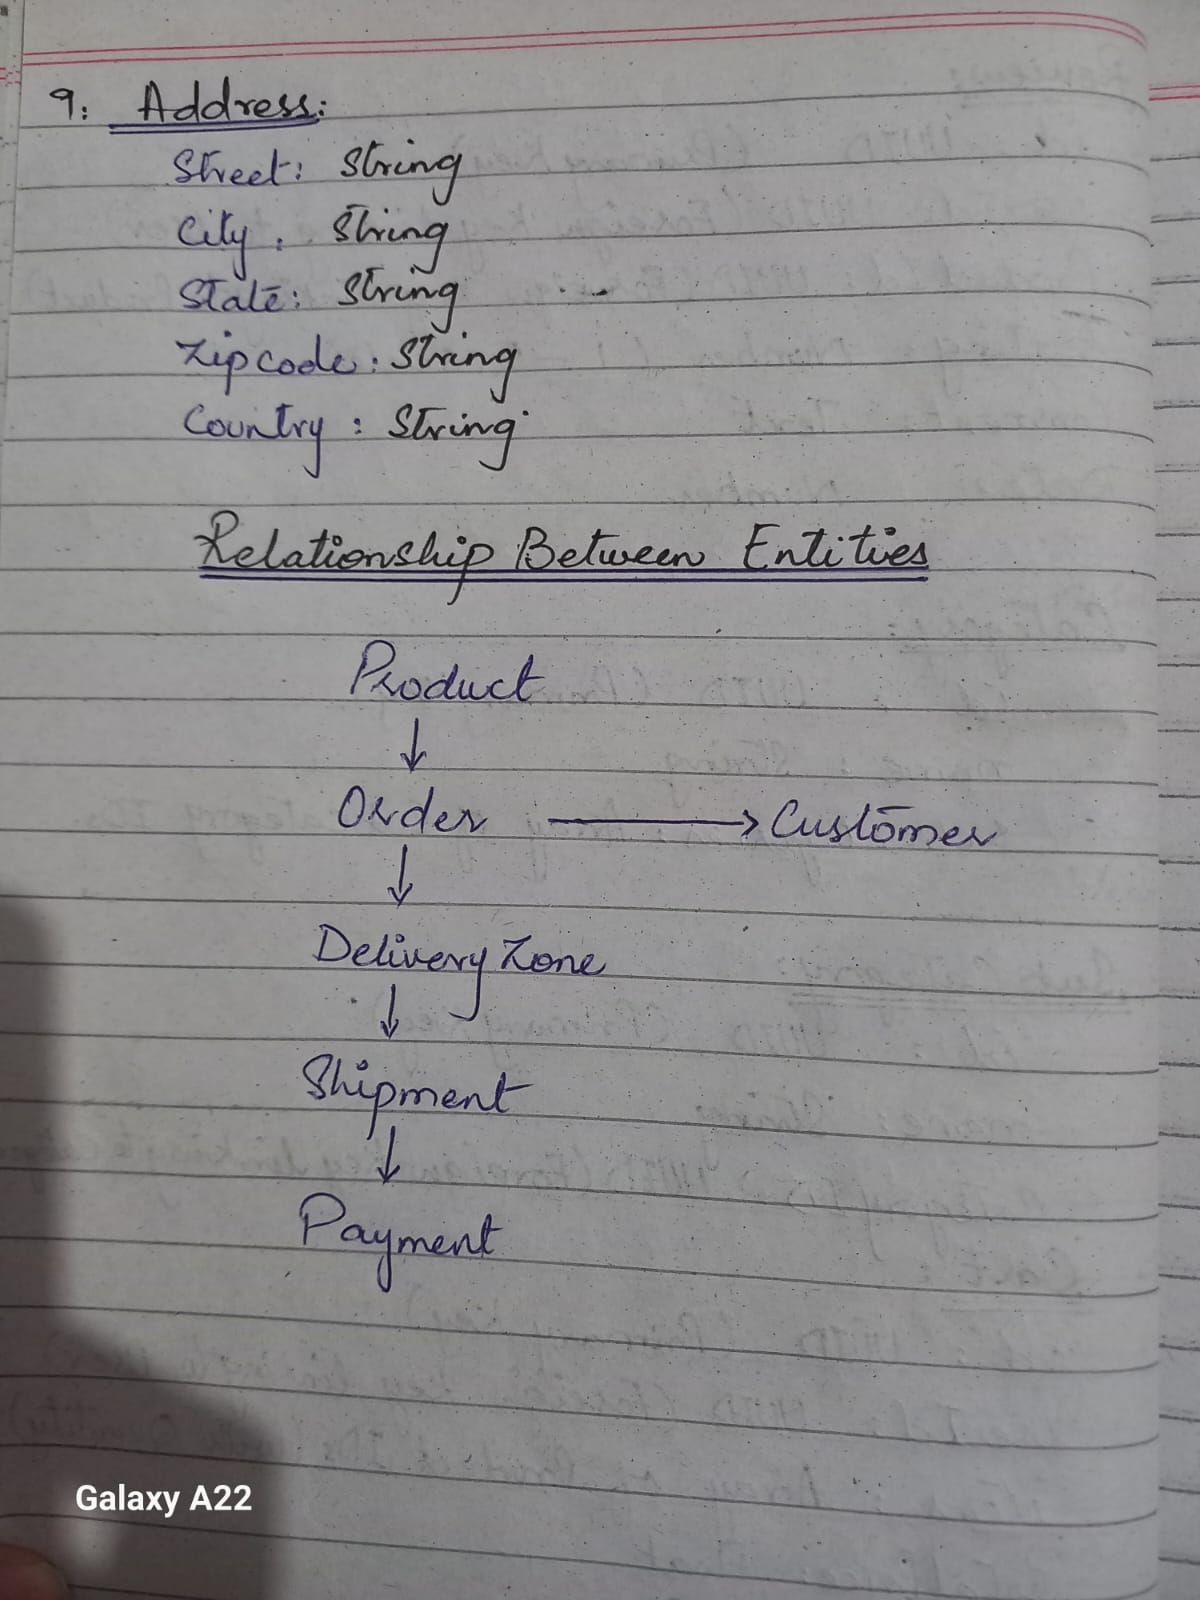 9: Address:
Street: String
City: String
State: String
Zipcode: String
Country: String
Relationship Between Entities
Product
↓
Order → Customer
↓
Delivery Zone
↓
Shipment
↓
Payment
Galaxy A22